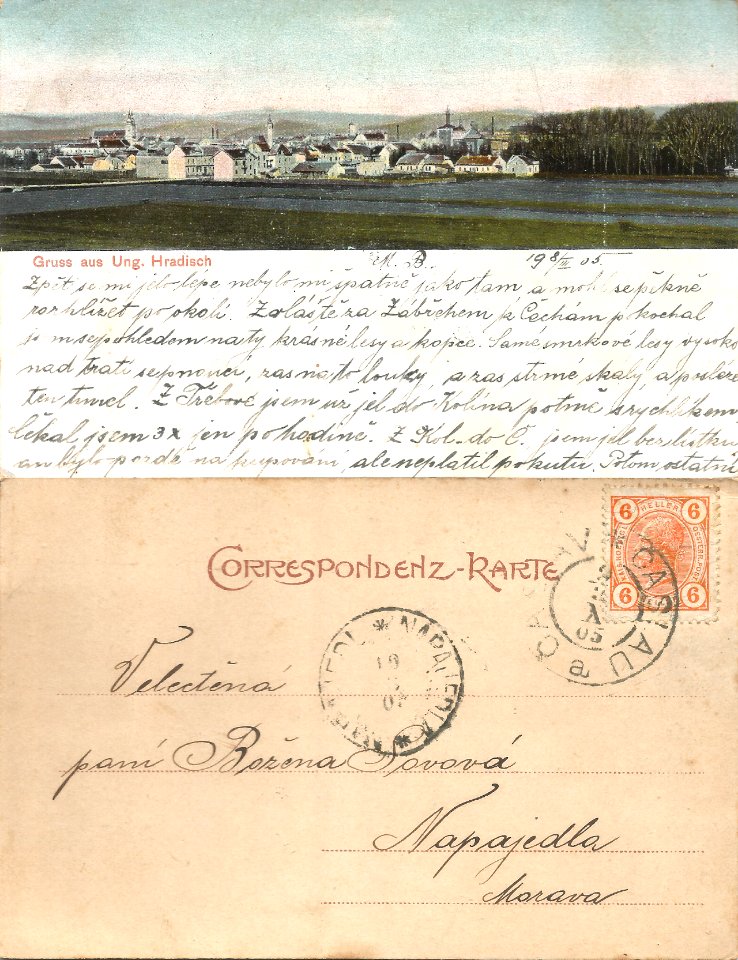 Gruss aus Ung. Hradisch
M. B. 19 8/IX 05
Zpět se mi jelo lépe nebylo mi špatně jako tam a mohl se pěkně
rozhlížet po okolí. Zvláště za Zábřehem k Čechám pokochal
jsem se pohledem na ty krásné lesy a kopce. Samé smrkové lesy vysoko
nad tratí se pnoucí, zas na to louky, a zas strmé skály, a posléze
ten tunel. Z Třebové jsem už jel do Kolína potmě s rychlíkem
čekal jsem 3x jen po hodině. Z Kol. do Č. jsem jel bez lístku
an bylo pozdě na kupování ale neplatil pokutu. Potom ostatní
CORRESPONDENZ-KARTE
6 HELLER 6
6 6
ČASLAU a
05
NAPAJEDL * NAPAJEDLA *
Veleděná
paní Božena Sovová
Napajedla
Morava